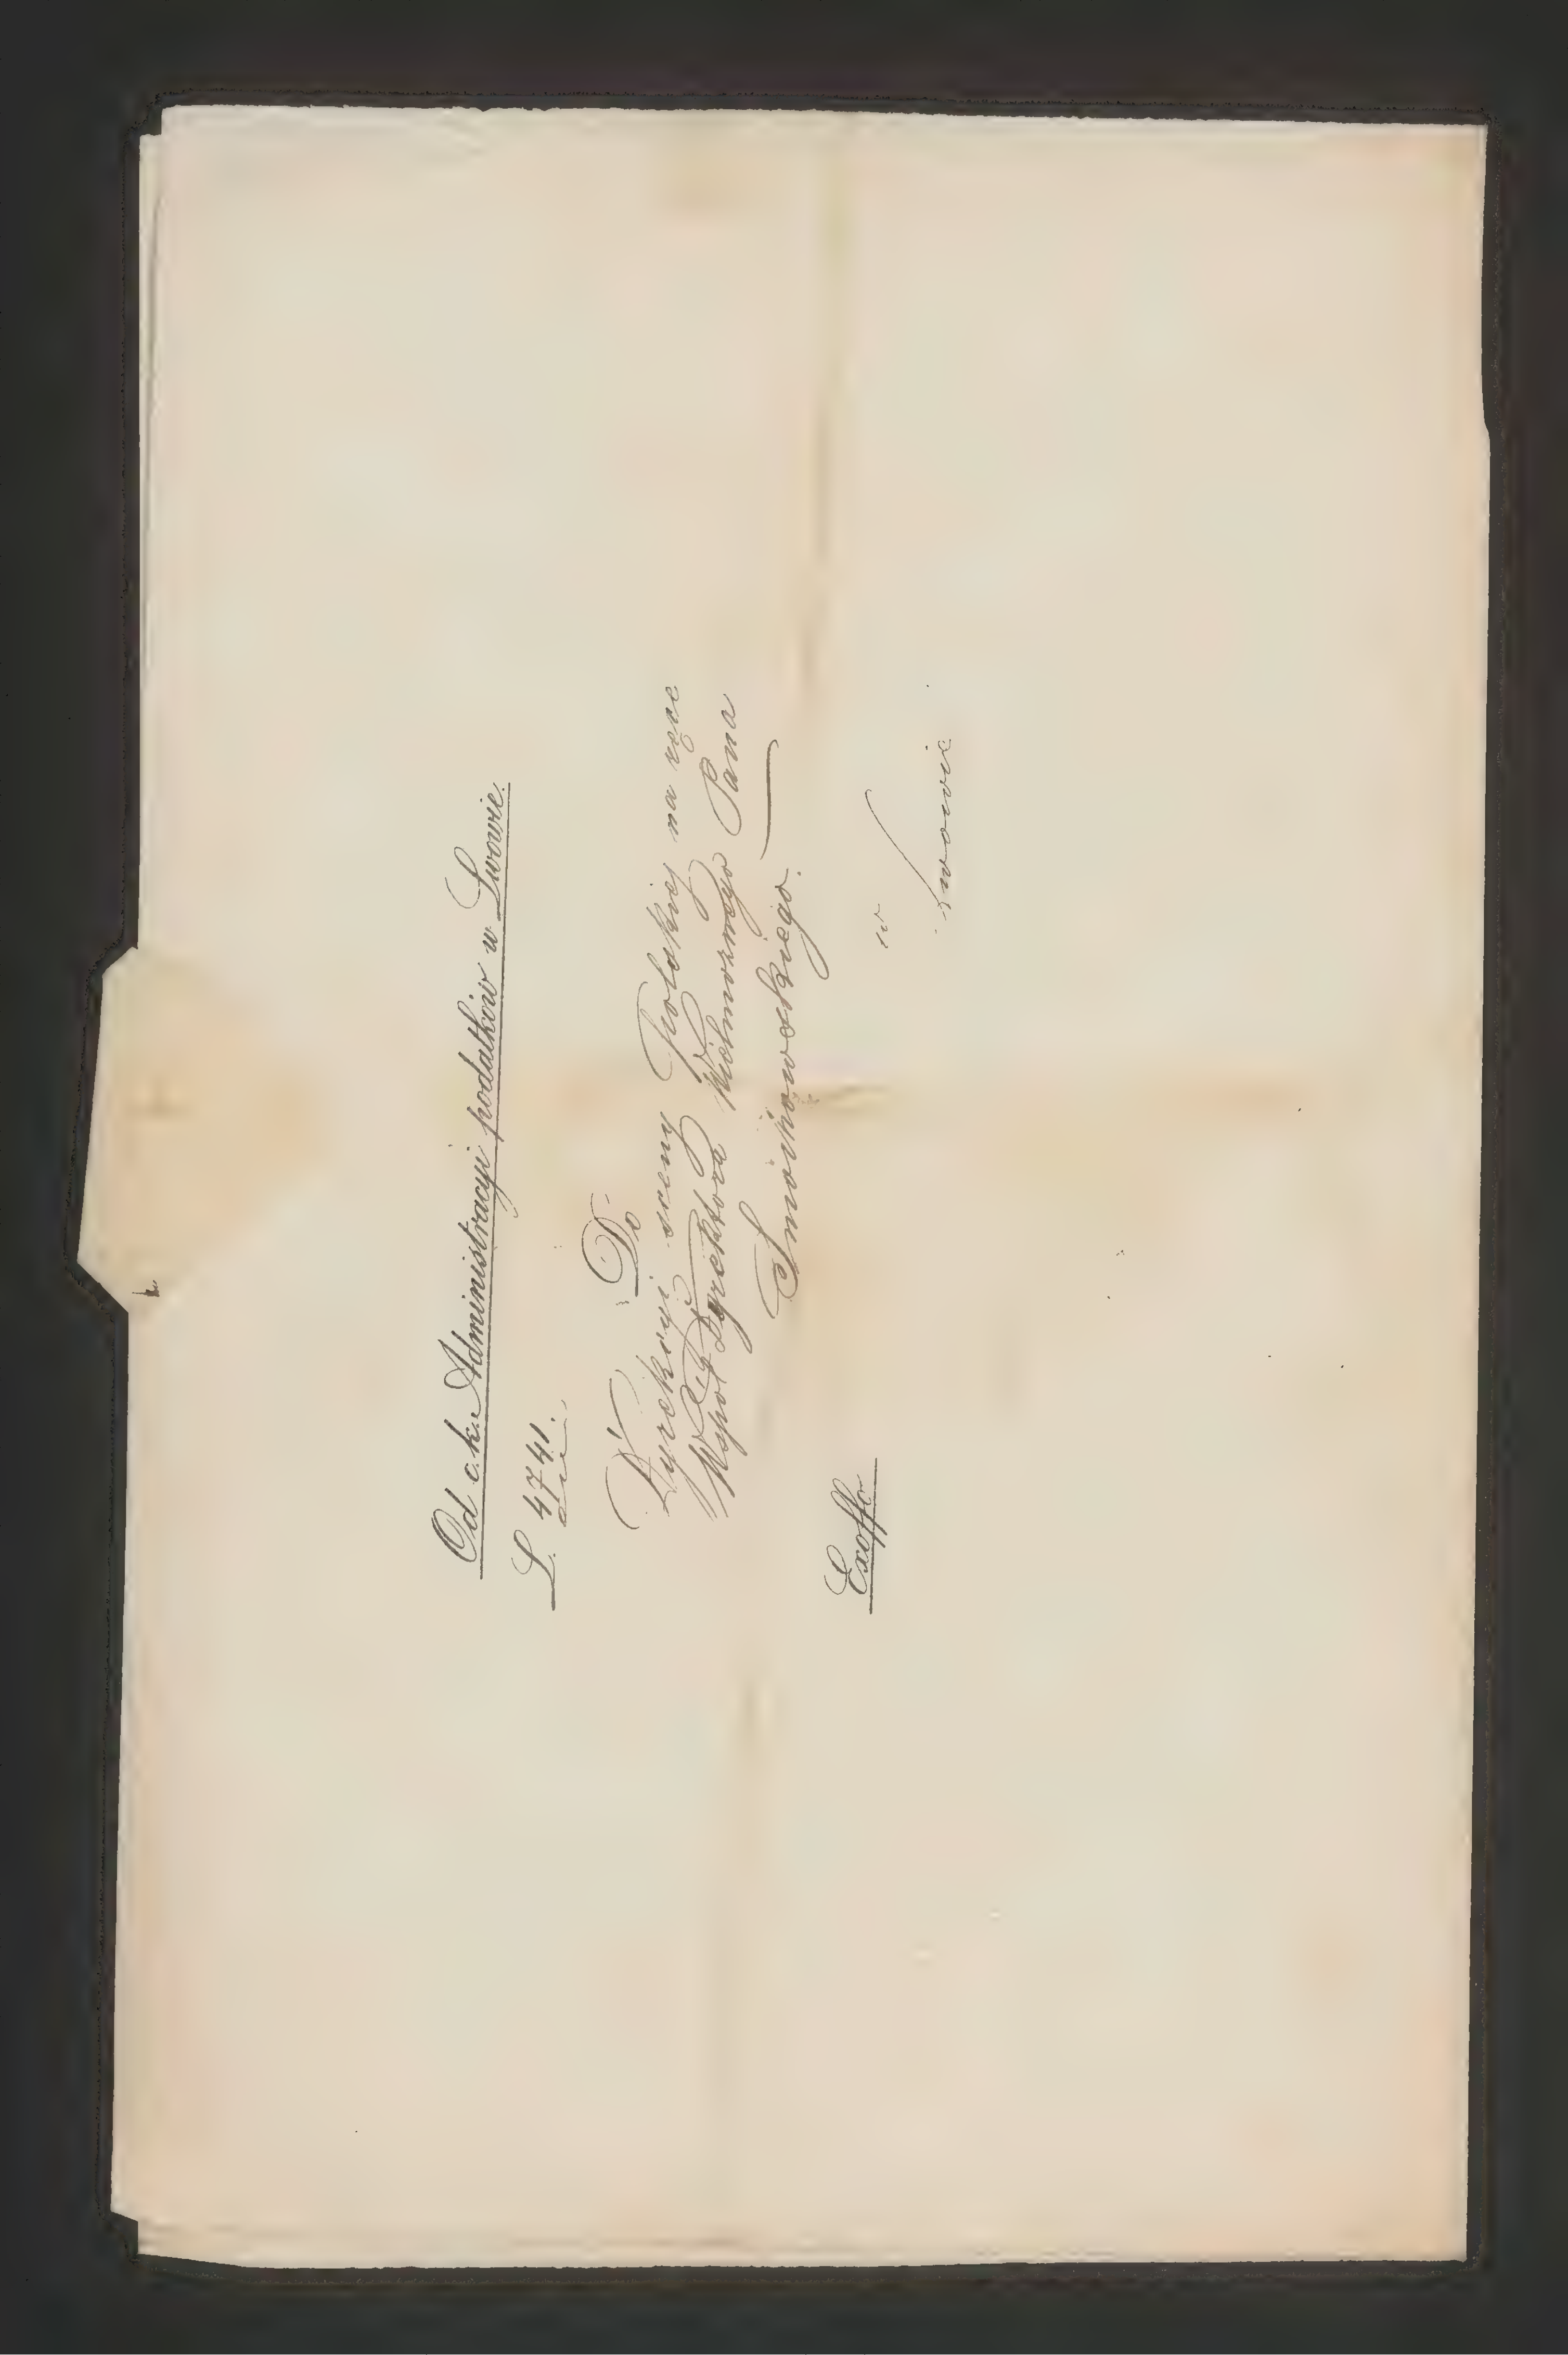 Od c.k. Administracyi podatków w Lwowie.
L. 4741.
Do
Dyrekcyi sceny Polskiej na ręce
Współ Dyrektora Wielmożnego Pana
Smochowskiego.
w
Lwowie
Exoffo